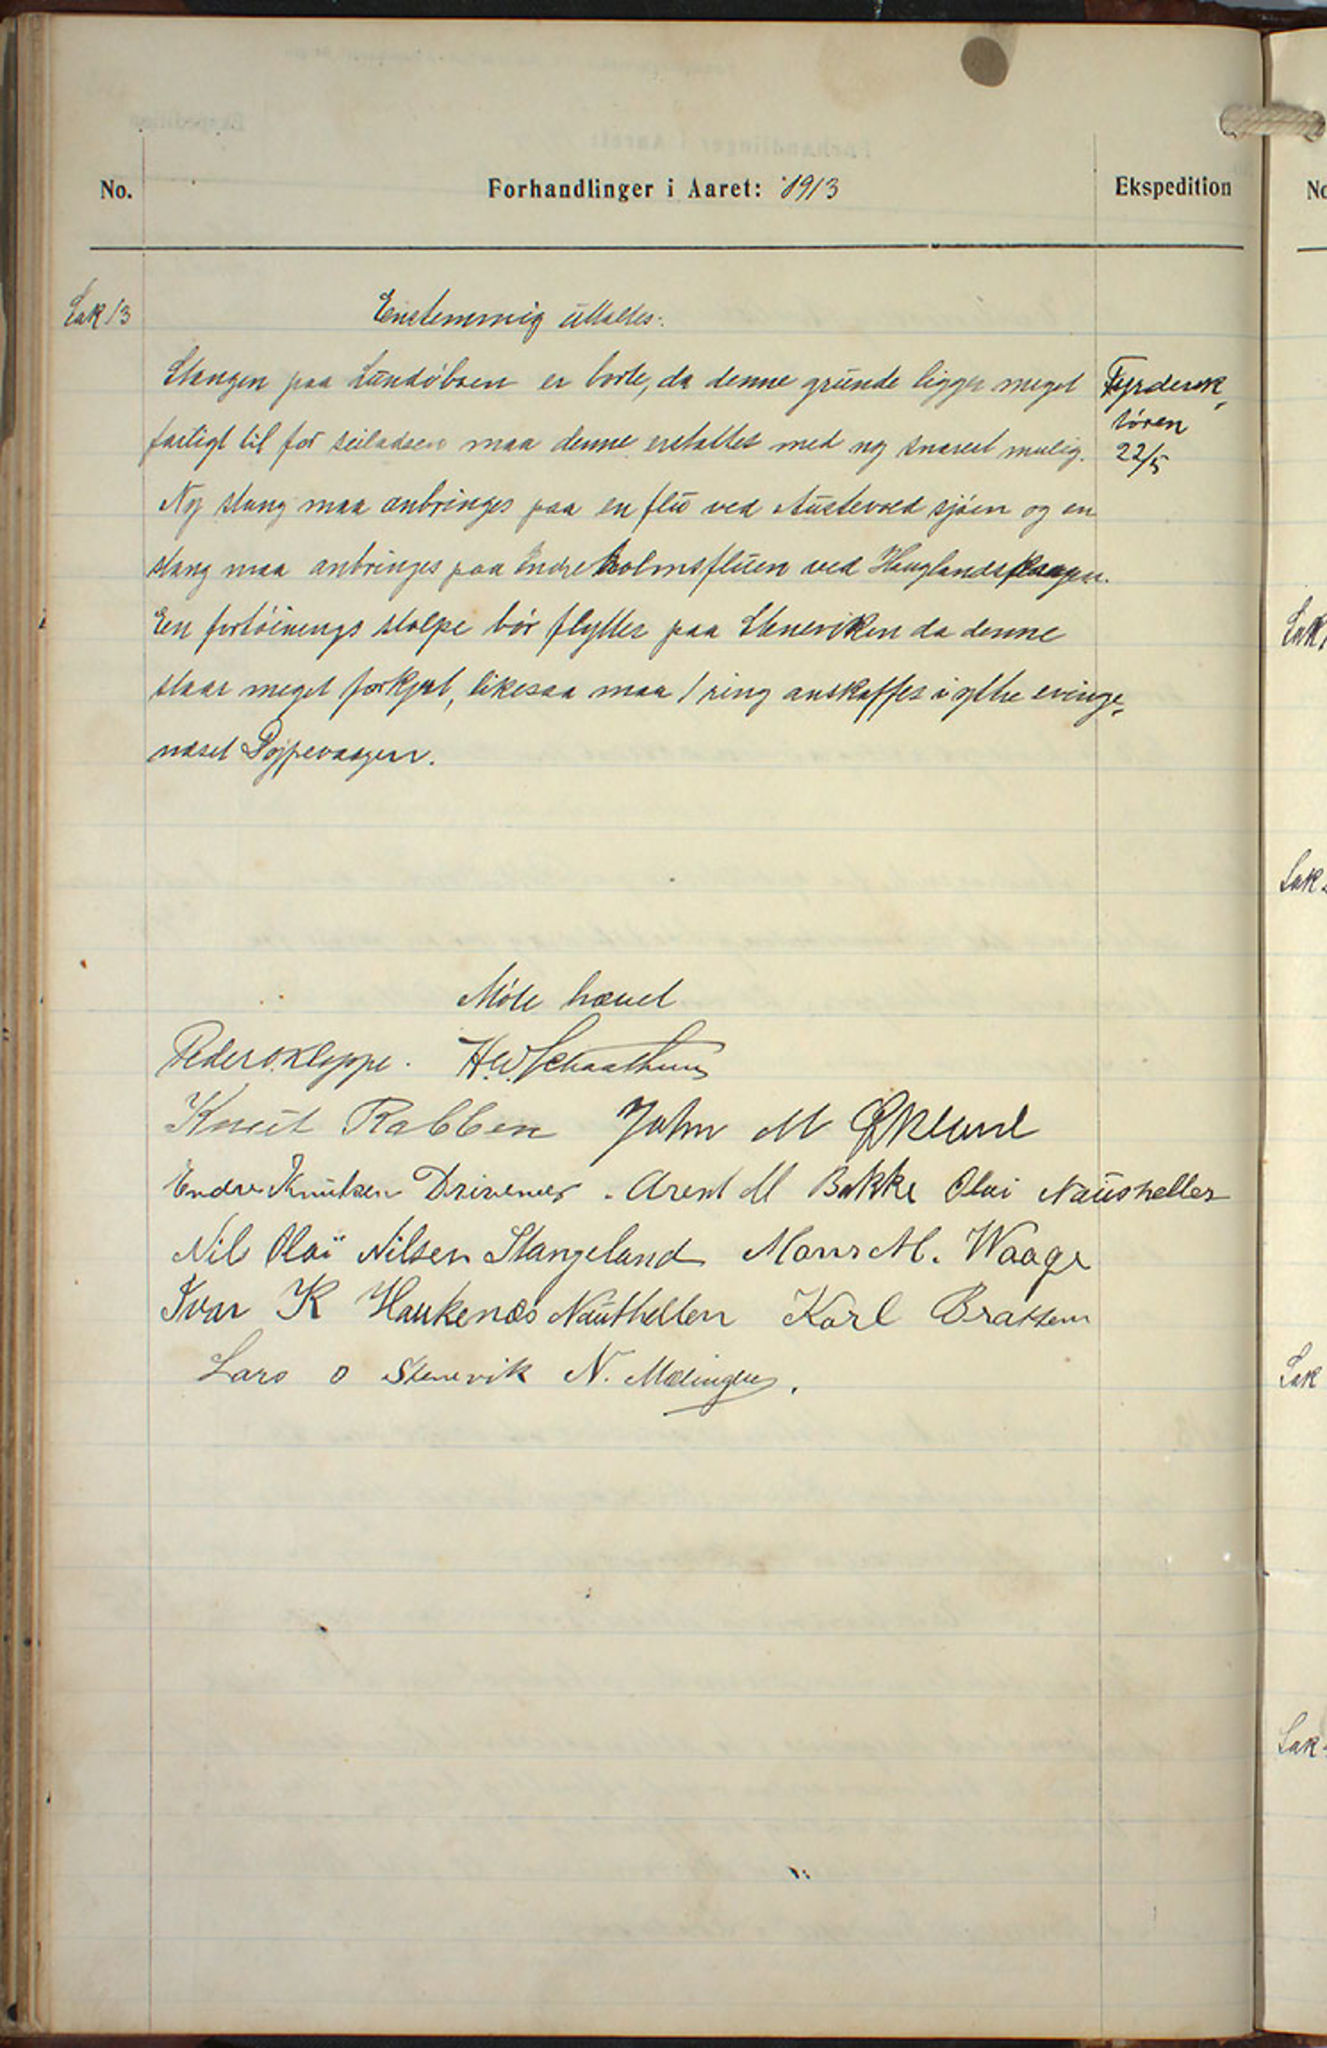 No.
Forhandlinger i Aaret: 1913
Ekspedition
Sak 13
Enstemmig uttaltes:
Stangen paa Lundøboen er borte, da denne grunde ligger meget
farligt til for seiladsen maa denne erstattes med ny snarest mulig.
Fyrdirek-
tøren
22/5
Ny stang maa anbringes paa en flu ved Austevold sjøen og en
stang maa anbringes paa Endreholmsfluen ved Hauglandsvaagen.
Een fortøinings stolpe bør flyttes paa Steneviken da denne
staar meget forkjert, likesaa maa 1 ring anskaffes i ytre
næset Pøjpevaagen.
Møte hævet
Peder O. Kleppe. H.W. Schaathun
Knut Rabben John M Økland
Endre Knutsen Drivenes. Arent M Bakke Olai Naushellen
Nil Olai Nilsen Stangeland Mons M. Waage
Ivar K Haukenæs Nauthellen Karl Brattem
Lars O Stenevik N. Mælingen.
Sak
Sak
Sak
Sak